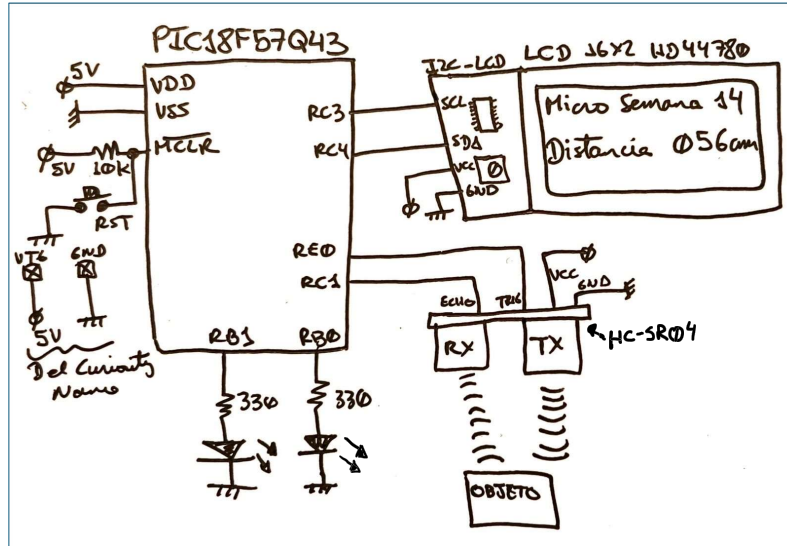 PIC18F57Q43
5V
VDD
VSS
MCLR
5V
10K
RST
VTG
GND
5V
Del Curiosity
Nano
RC3
RC4
RE0
RC1
RB1
RB0
330
330
I2C-LCD
LCD 16X2 HD44780
SCL
SDA
VCC
GND
Micro Semana 14
Distancia 056cm
ECHO
TRIG
VCC
GND
HC-SR04
RX
TX
OBJETO